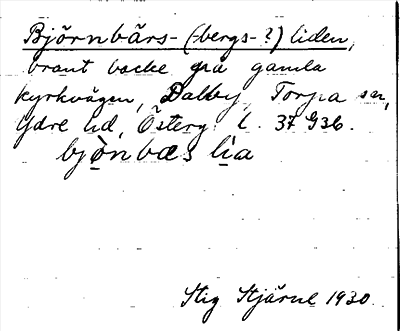 Björnbärs- (-bergs-?) liden,
brant backe på gamla
kyrkvägen, Dalby, Torpa sn,
Ydre hd, Österg. l. 37 G36.
bjò̤nbæs lìa
Stig Stjärne 1930.